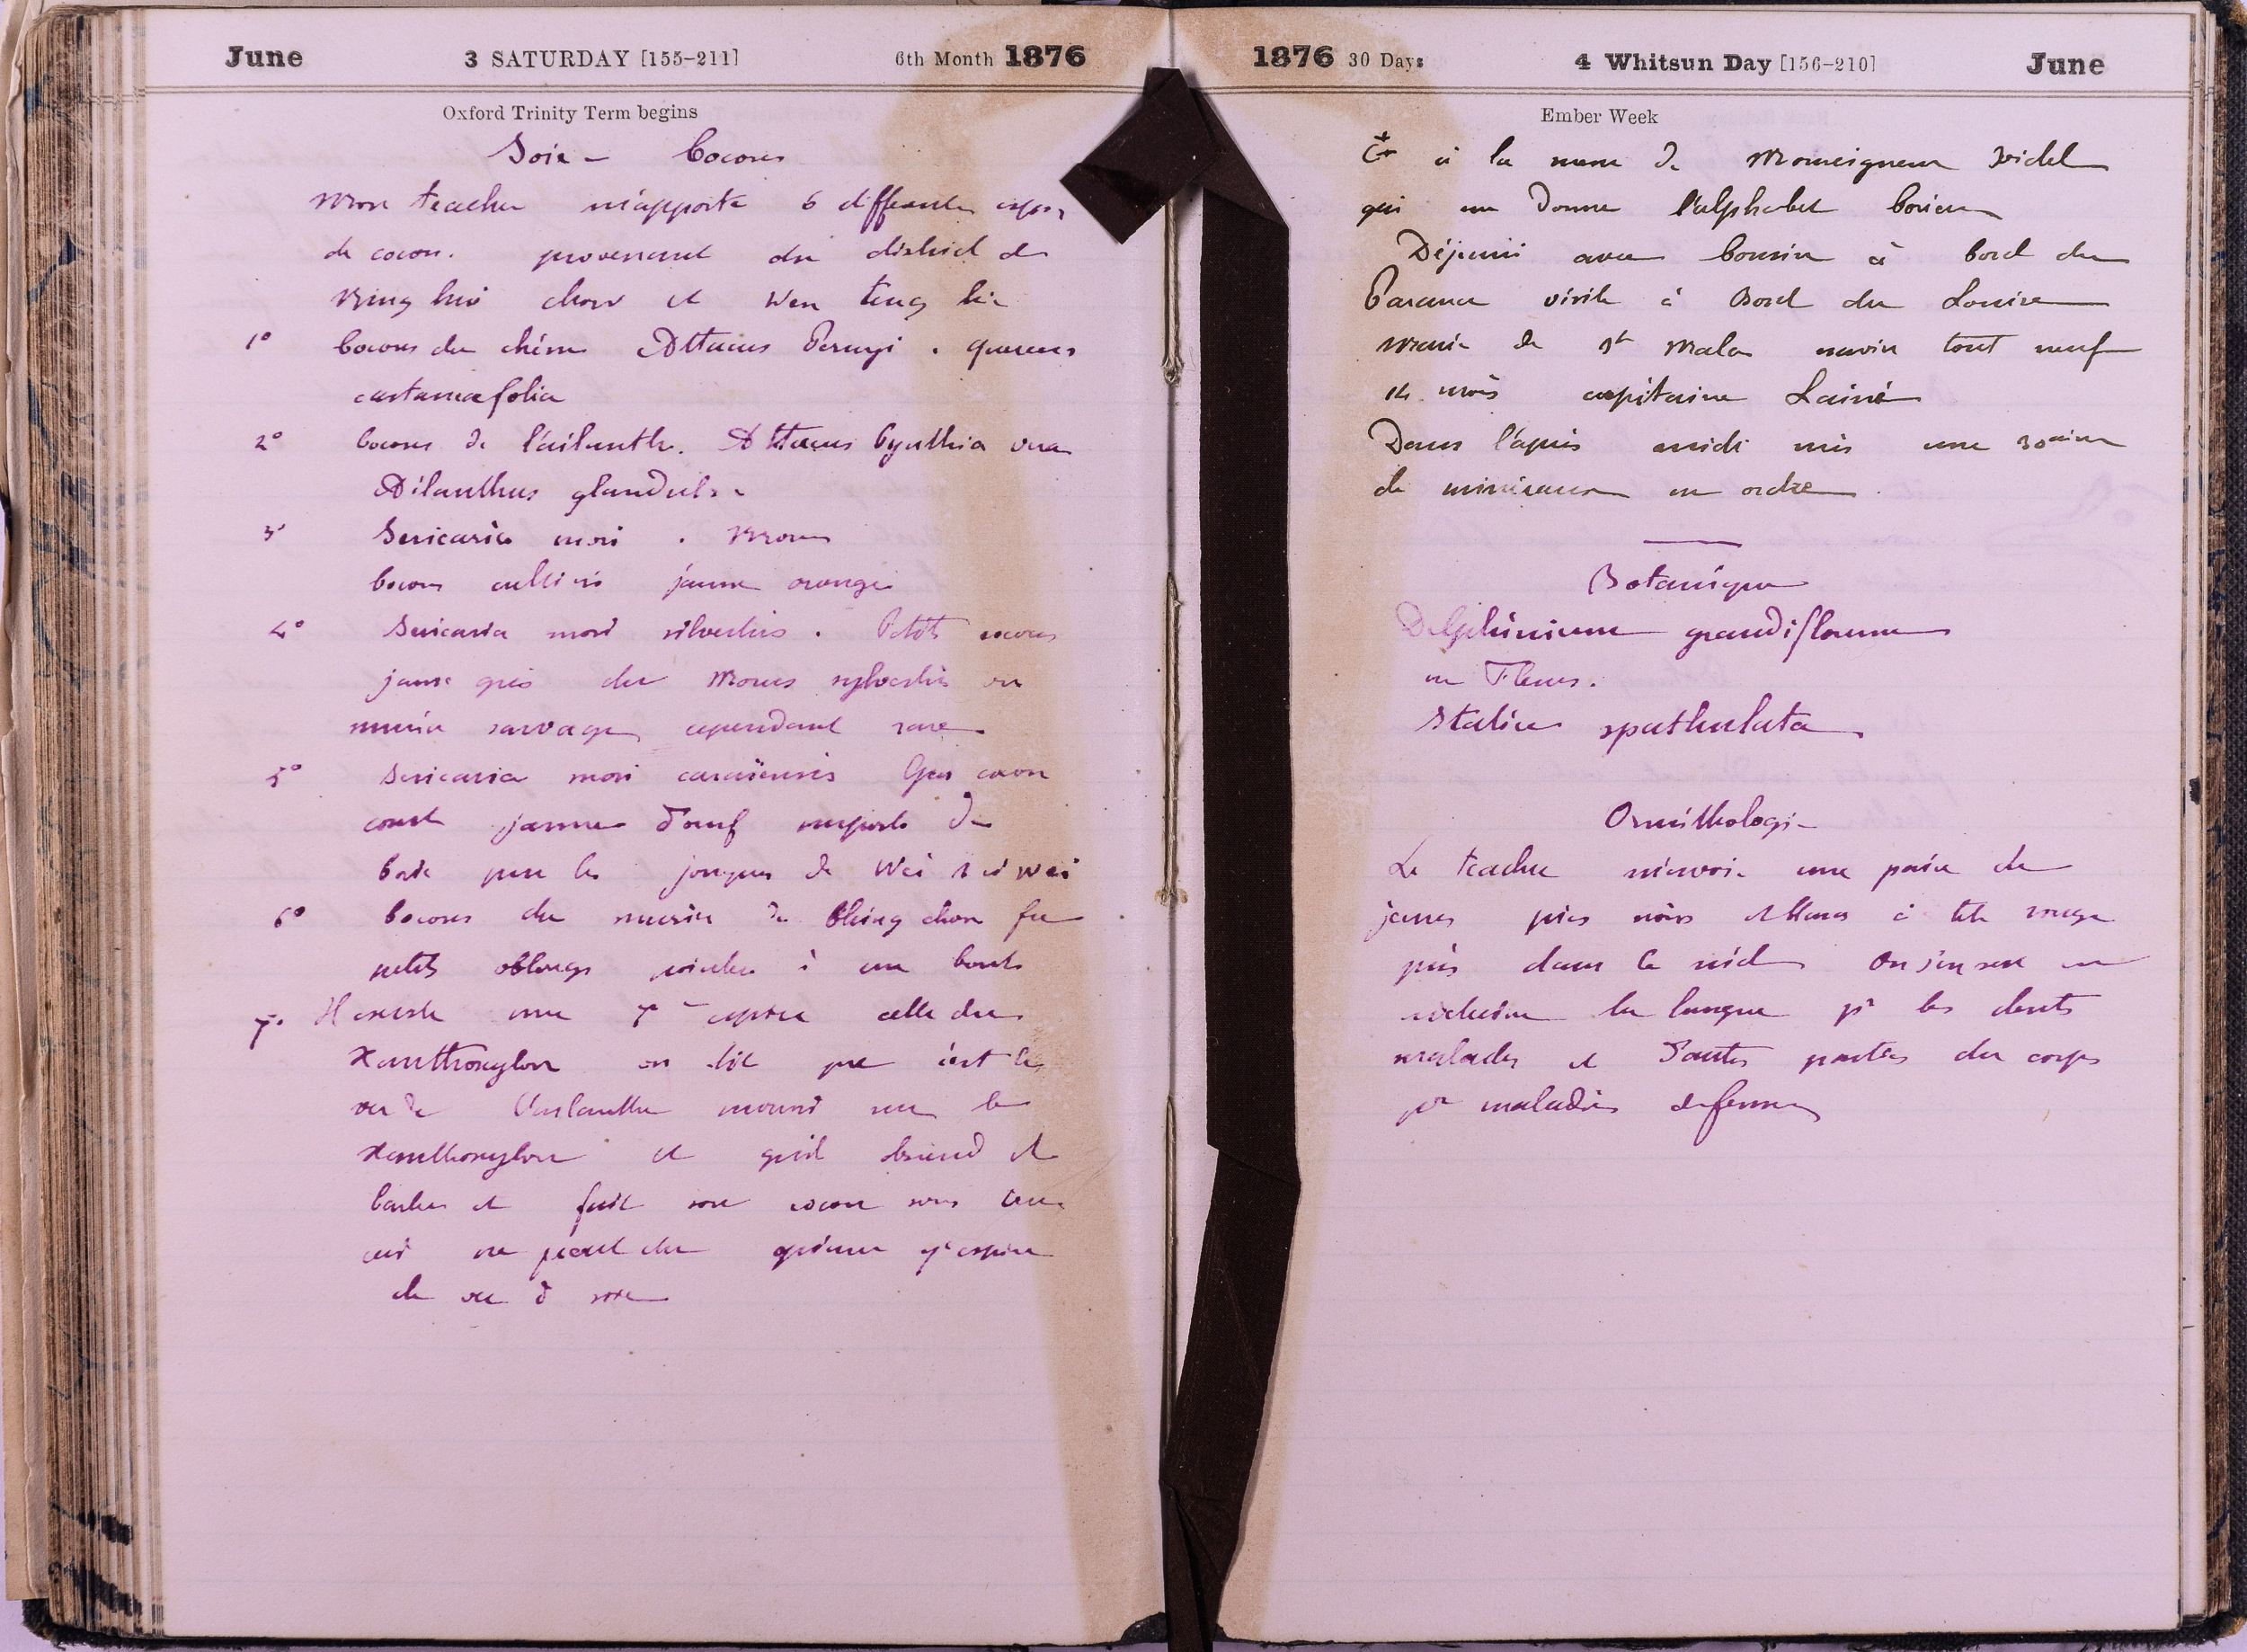 June 3 SATURDAY [155-211] 6th Month 1876
Oxford Trinity Term begins
Soie - Cocons
Mon teacher m'apporte 6 differentes
de cocon. provenant du district de
Ning hai chow et Wen teng
1° Cocons du chêne Attacus Pernyi. quercus
castaneafolia
2° Cocons de l'ailanthe. Attacus Cynthia vera
Ailanthus glandulosa
3° Sericaria mori. Morus
Cocons cultivés jaune orange
4° Sericaria mori silvestris. Petits cocons
jaune gris du Morus sylvestris ou
murier sauvage cependant rare
5° Sericaria mori Gros cocon
court jaune d'oeuf importé de
Corée par les jonques de Wei hai wei
6° Cocons du murier de Ching chou fu
petits oblongs à un bout
7° Il existe une 7e espèce celle du
Xanthoxylon on dit que c'est le
ver de l'ailanthe nourri sur le
Xanthoxylon et qu'il descend et
et fait son cocon sous terre
ceci me parait du espèce
de ver à soie
1876 30 Days 4 Whitsun Day [156-210] June
Ember Week
à la messe de Monseigneur Ridel
qui me donne l'alphabet Coréen
Déjeuné avec Cousin à bord du
Parana visite à bord du Louise
Marie de St Malo navire tout neuf
14 mois capitaine Lainé
Dans l'après midi mis une 30aine
de minéraux en ordre.
Botanique
Delphinium grandiflorum
en Fleurs.
Statice spathulata
Ornithologie
Le teacher m'envoie une paire de
jeunes pics noirs et blancs à tête rouge
pris dans le nid on s'en sert en
médecine la langue pr les dents
malades et d'autres parties du corps
pr maladies de femmes